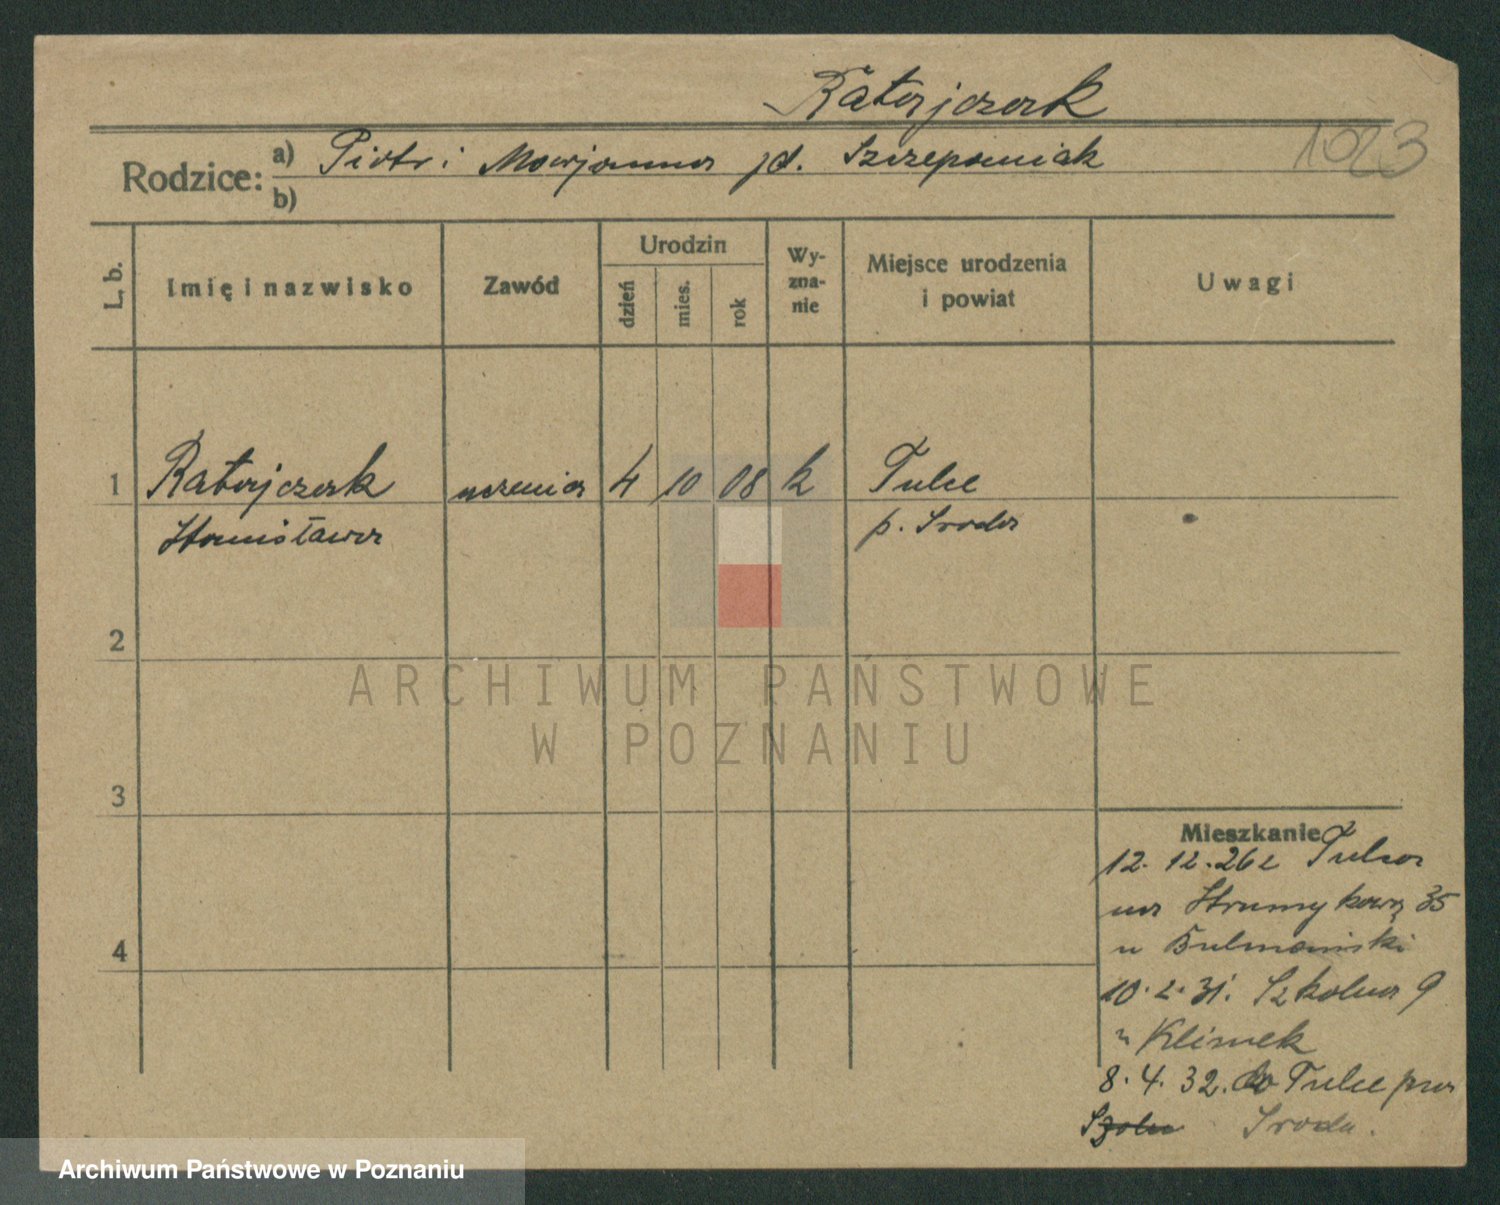 Ratajczak
1023
Rodzice: a) Piotr i Marjanna zd. Szczepaniak
b)
L. b.
Imię i nazwisko
Zawód
Urodzin
dzień
mies.
rok
Wy-
zna-
nie
Miejsce urodzenia
i powiat
Uwagi
1 Ratajczak uczenica 4 10 08 k Tulce
Stanisława p. Sroda
2
3
4
ARCHIWUM PAŃSTWOWE
W POZNANIU
Mieszkanie
12. 12. 26 z Tulca
na Strumykową 35
u
10. 2. 31. Szkolna 9
u Klimek
8. 4. 32. do Tulce pow
Sroda.
Archiwum Państwowe w Poznaniu